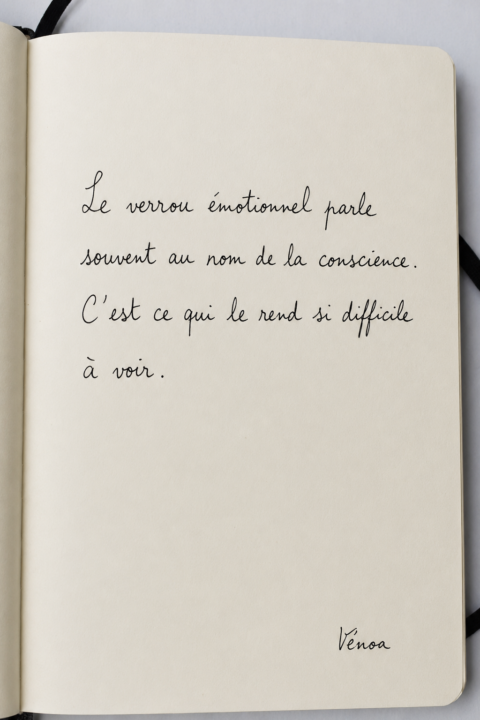 Le verrou émotionnel parle
souvent au nom de la conscience.
C'est ce qui le rend si difficile
à voir.
Vénoa